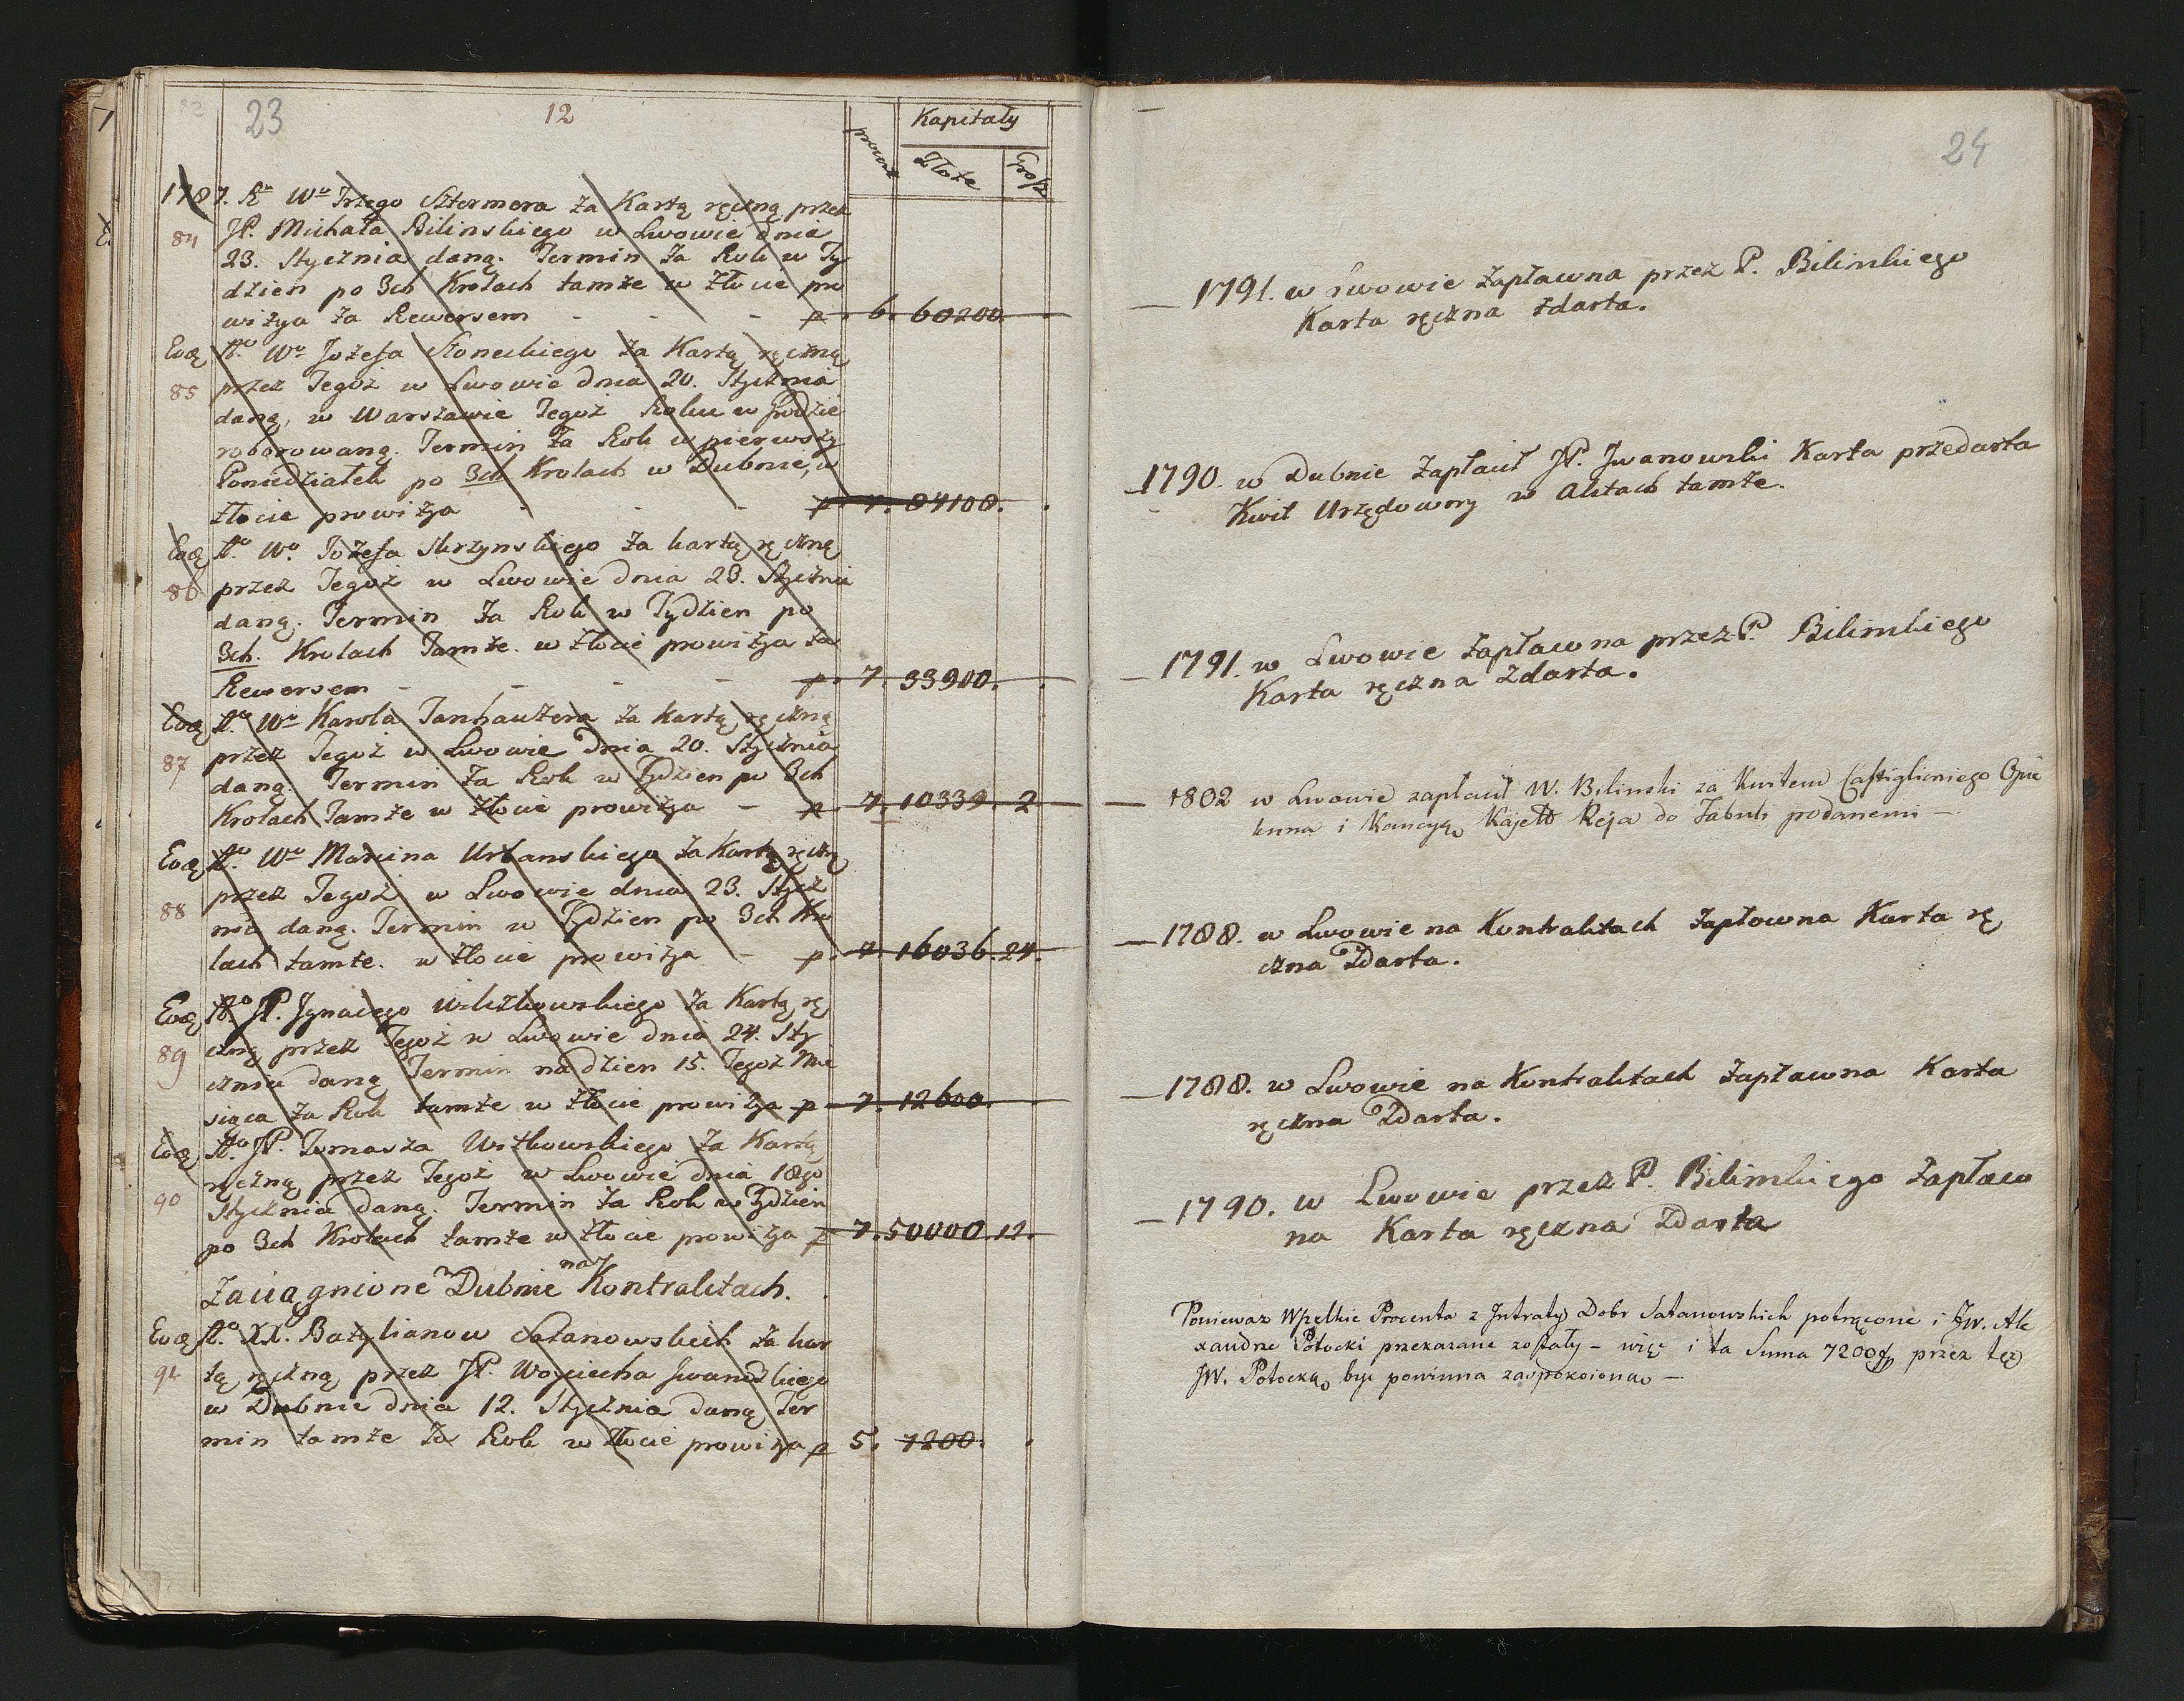 23
12
prowiz
Kapitały
Złote
Grosz
1787. A° W° Jrzego Sztermera za Kartą ręczną przez
84 JP. Michała Bilinskiego w Lwowie dnia
23. Stycznia daną. Termin za Rok w Ty
dzien po 3ch Krolach tamże w złocie pro
wizya za Rewersem - - - p. 6. 60200.
Eoq A° W° Jozefa Skoneckiego za Kartą ręczną
85 przez Tegoż w Lwowie dnia 20. Stycznia
daną, w Warszawie Tegoż Roku w Grodzie
roborowaną. Termin za Rok w pierwszy
Poniedziałek po 3ch Krolach w Dubnie, w
złocie prowizya - - - p 7. 84108.
Eoq A° W° Jozefa Skrzynskiego za kartą ręczną
86 przez Tegoż w Lwowie dnia 23. Stycznia
daną. Termin za Rok w Tydzien po
3ch. Krolach Tamże w złocie prowizya za
Rewersem - - - - p. 7. 33900.
Eoq A° W° Karola Tanhauzera za Kartą ręczną
87 przez Tegoż w Lwowie dnia 20. Stycznia
daną. Termin za Rok w Tydzien po 3ch
Krolach Tamże w złocie prowizya - p. 7. 10339. 2
Eoq A° W° Marcina Urbanskiego za Kartą ręczną
przez Tegoż w Lwowie dnia 23. Stycz
88 nia daną. Termin w Tydzien po 3ch Kro
lach tamże. w złocie prowizya - p. 7. 16036. 24.
Eoq A° JP. Jgnacego Wilczkowskiego za Kartą rę
89 czną przez Tegoż w Lwowie dnia 24. Sty
cznia daną Termin na dzien 15. Tegoż Mie
siąca za Rok tamże w złocie prowizya p 7. 12600.
Eoq A° JP. Tomasza Witkowskiego za Kartą
ręczną przez Tegoż w Lwowie dnia 18go
90 Stycznia daną. Termin za Rok w Tydzien
po 3ch Krolach tamże w złocie prowizya p 7. 50000. 12.
Zaciągnione w Dubnie na Kontraktach.
Eoq A° XX. Bazylianow Satanowskich za kar
91 tą ręczną przez JP. Woyciecha Jwanickiego
w Dubnie dnia 12. Stycznia daną Ter
min tamże za Rok w złocie prowizya p 5. 7200.
24
1791. w Lwowie zapłacona przez P. Bilinskiego
Karta ręczna zdarta.
1790. w Dubnie zapłacił JP. Jwanowski Karta przedarta
Kwit Urzędowny w Aktach tamże.
1791. w Lwowie zapłacona przez P. Bilinskiego
Karta ręczna zdarta.
1802 w Lwowie zapłacił W. Bilinski za Kwitem Castiglioniego Opie
kuna i Kaucyą Kajett Reja do Tabuli podanemi -
1788. w Lwowie na Kontraktach zapłacona Karta rę
czna zdarta.
1788. w Lwowie na Kontraktach zapłacona Karta
ręczna zdarta.
1790. w Lwowie przez P. Bilinskiego zapłaco
na Karta ręczna zdarta
Poniewaz Wszelkie Procenta z Jntraty Dobr Satanowskich potrącone i JW. Ale
xandrze Potocki przekazane zostały - więc i ta Suma 7200 przez tęż
JW. Potocką być powinna zaspokoiona -